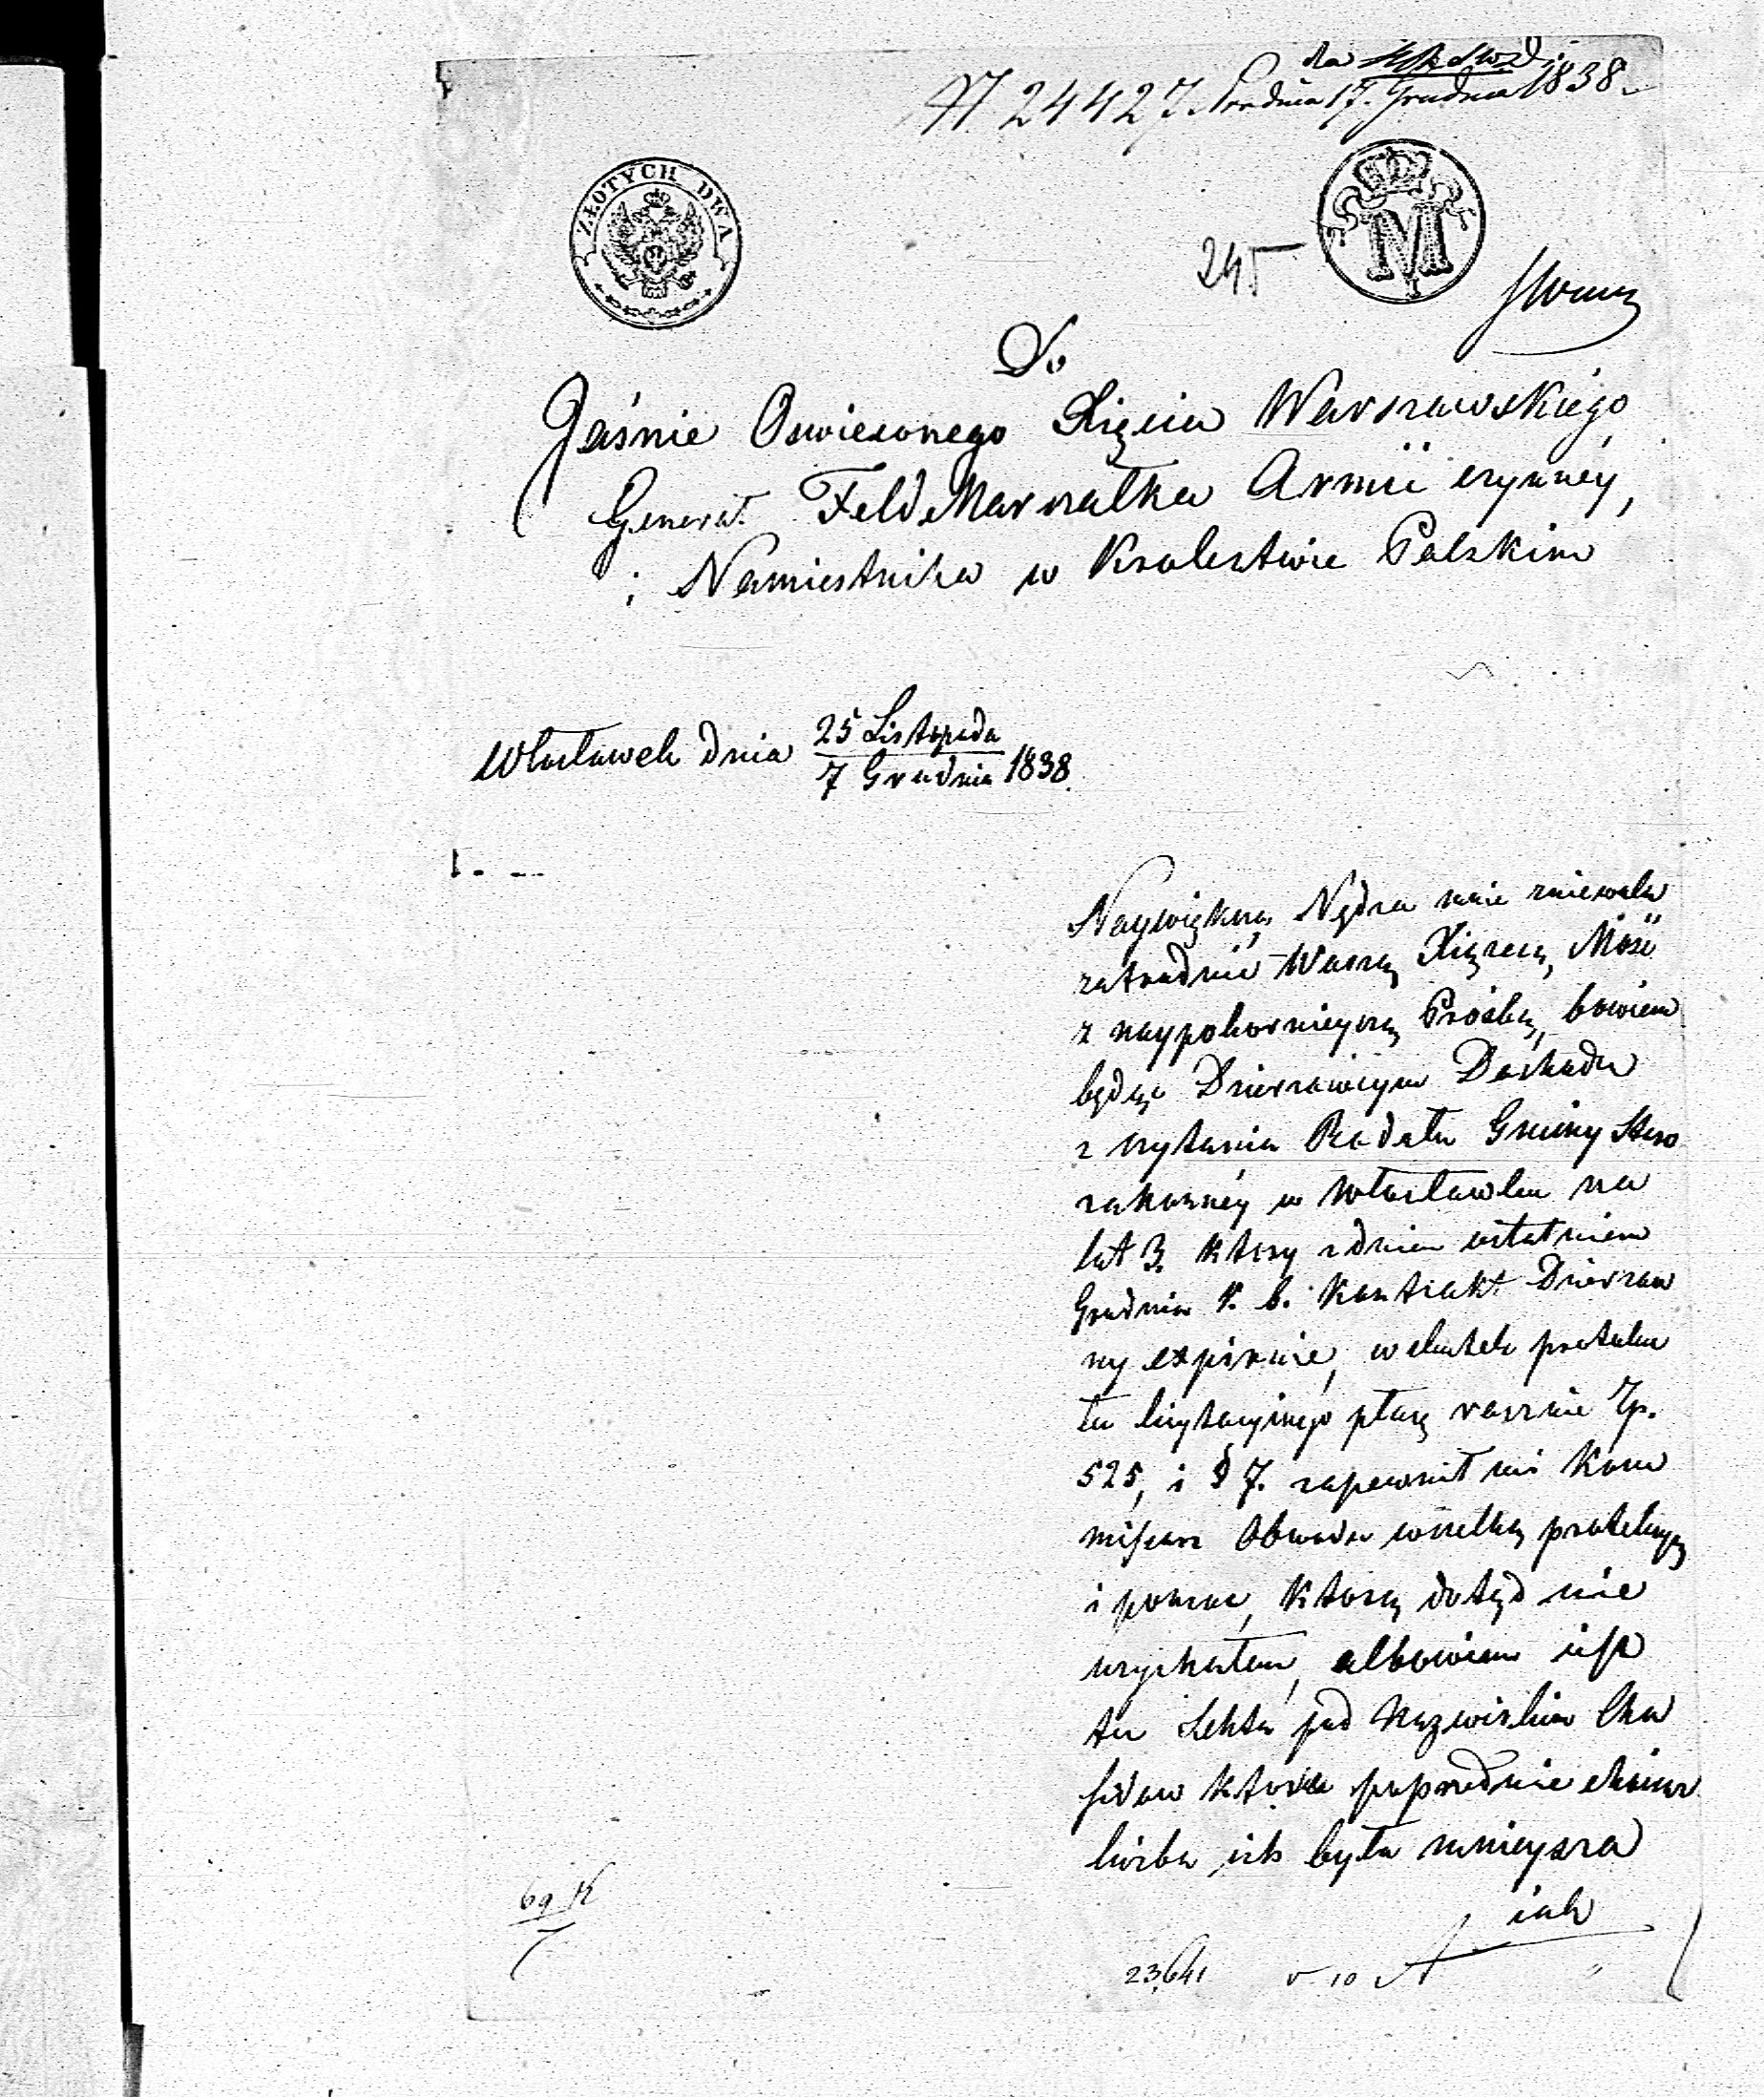 N 24427 Pr. dnia 17. Grudnia 1838
ZŁOTYCH DWA
M
245
Do
Jaśnie Oswieconego Xięcia Warszawskiego
Generał FeldMarszałka Armii czynney,
i Namiestnika w Krolestwie Polskim
Włocławek dnia 25 Listopada
7 Grudnia 1838.
Naywiększa Nędza mnie zniewala
zatrudnić Waszą Xiązecą Mość
z naypokornieyszą Prośbą, bowiem
będąc Dzierzawcym Dochodu
z czytania Rodału Gminy Staro
zakonney w Włocławku na
lat 3. ktory z dniem ostatniem
Grudnia r. b. Kontrakt Dzierzaw
ny expiruie, w skutek protoku
łu licytacyinego płacę rocznie Zp.
525, i § 7. zapewnił mi Kom
missarz Obwodu wszelką protekcyą
i pomoc, ktorą dotąd nie
uzyskałem, albowiem iest
tu Sekta pod Nazwiskiem Cha
sidow ktora poprzednie
liczba ich była mnieysza
iak
69
7
23,641